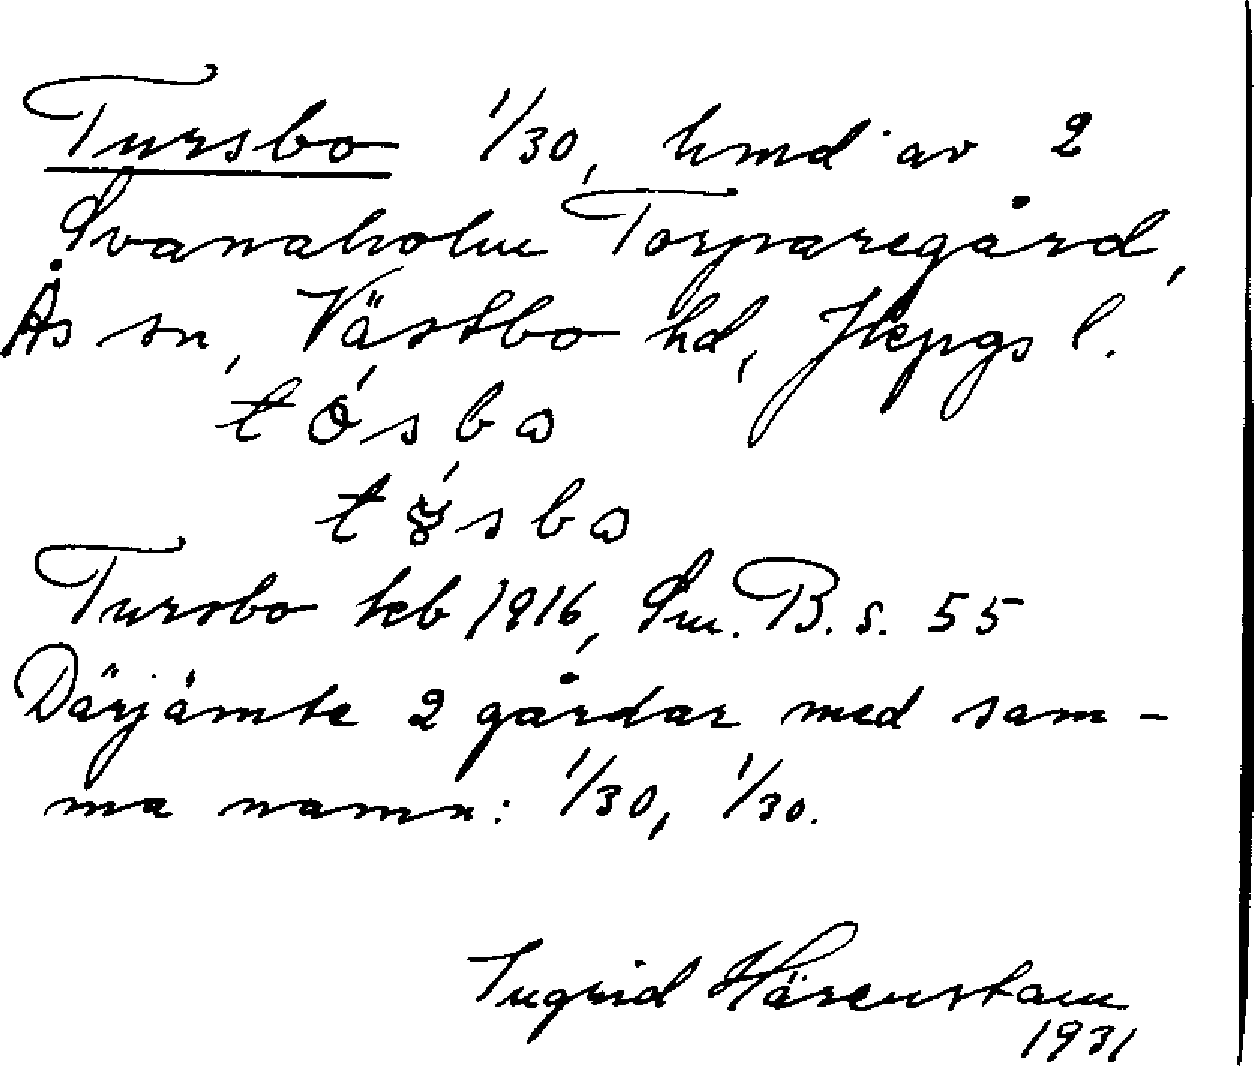 Tursbo 1/30, hmd av 2
Svanaholm Torparegård,
Ås sn, Västbo hd, Jkpgs l.
tósbo
Tursbo keb 1916, Sm. B. s. 55
Därjämte 2 gårdar med sam-
ma namn: 1/30, 1/30.
Ingrid Härenstam
1931